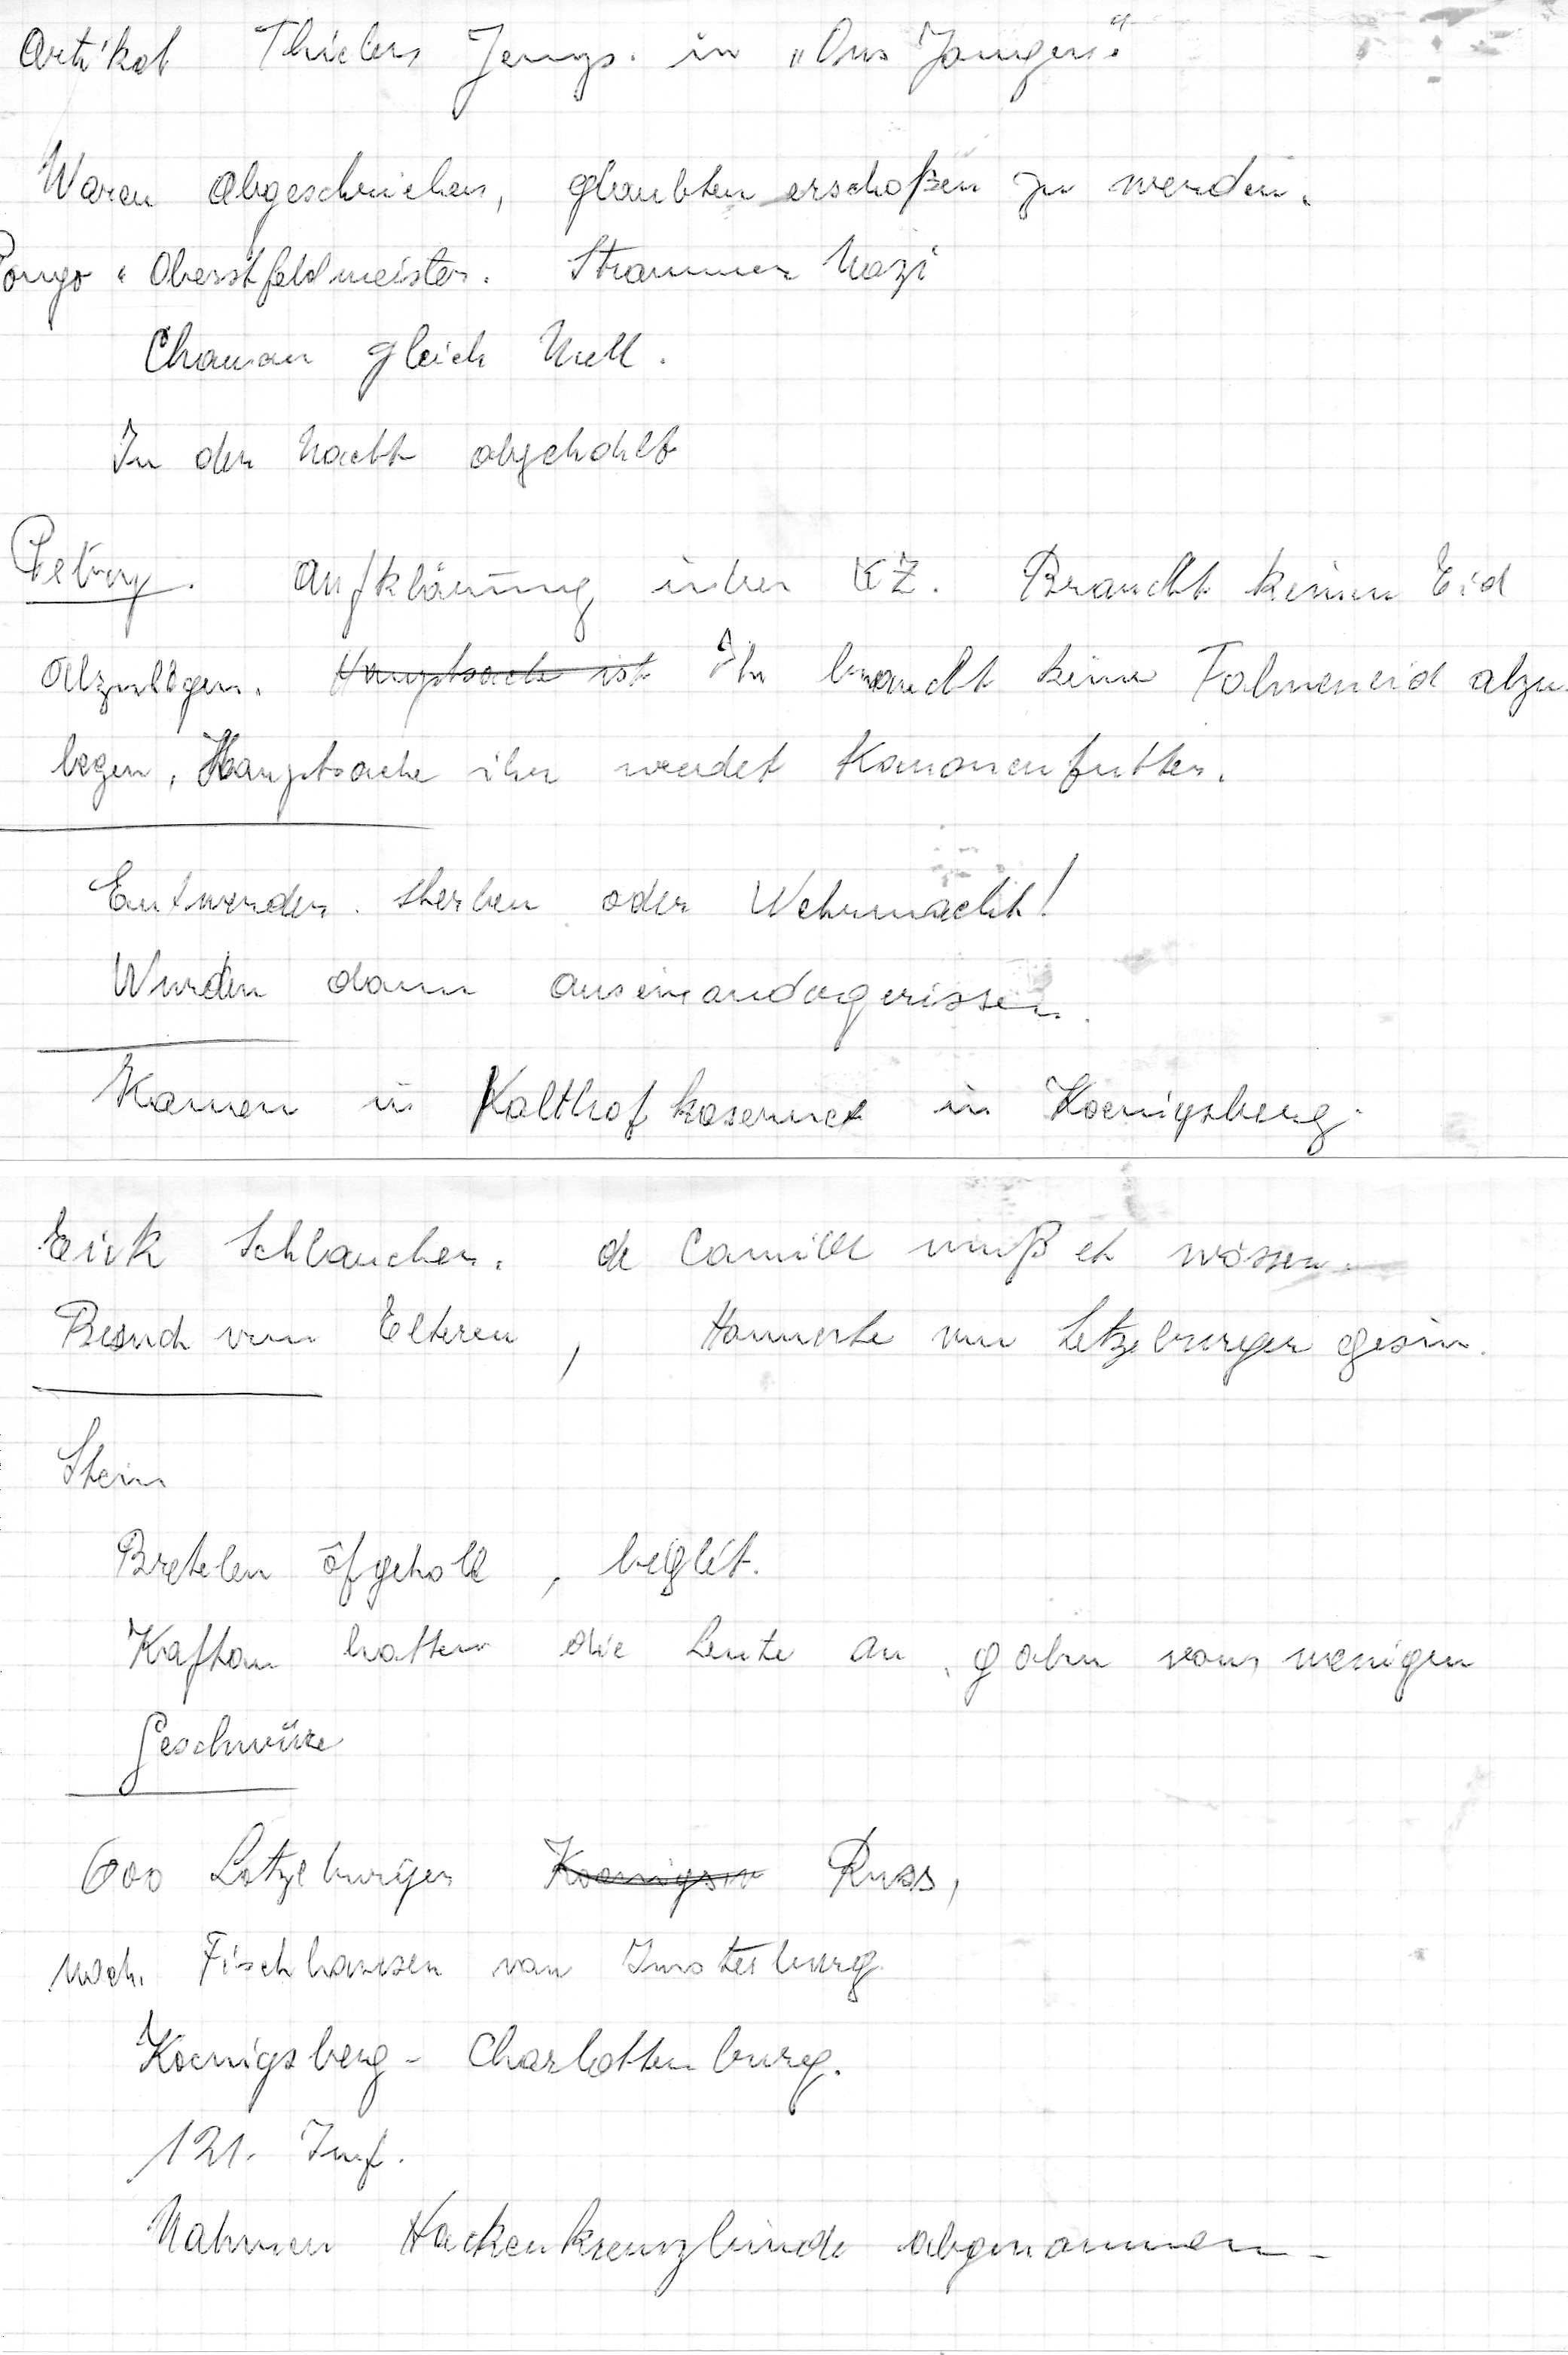 Artikel Thielen Jemp. in „Ons Jongen“
Waren abgeschrieben, glaubten erschoßen zu werden.
Pongo " Oberstfeldmeister. Strammer Nazi
Chaman gleich Null.
In der Nacht abgehohlt
Petry. Aufklärung über KZ. Braucht keinen Eid
abzulegen. Hauptsache ist Ihr braucht keine Fahneneid abzu
legen, Hauptsache ihr werdet Kanonenfutter.
Entweder sterben oder Wehrmacht!
Wurden dann auseinandergerissen.
Kamen in Kalthofkaserne in Koenigsberg.
Eisk Schlaucher. de Camille muß et wössen.
Besuch vun Elteren, Hannerte vun Letzeburger gesin.
Stein
Bretelen öfgeholl, beglét.
Kaftan hatten die Leute an, gaben vom wenigen
Geschwüre
600 Letzeburger Koenigsv Russ,
noch. Fischhausen van Insterburg
Koenigsberg - Charlottenburg.
121. Inf.
Nahmen Hackenkreuzbinde abgenommen -